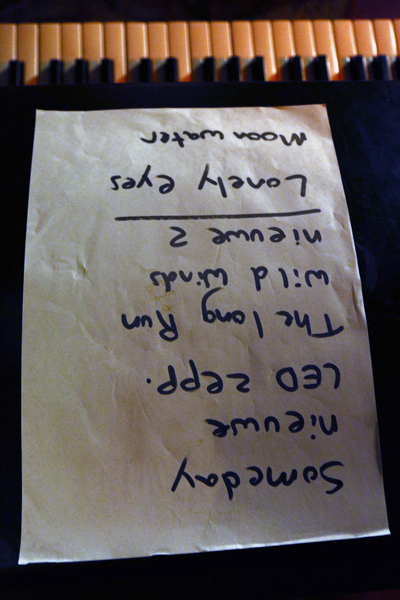 Someday
nieuwe
LED zepp.
The long Run
wild winds
nieuwe 2
Lonely eyes
Moon water